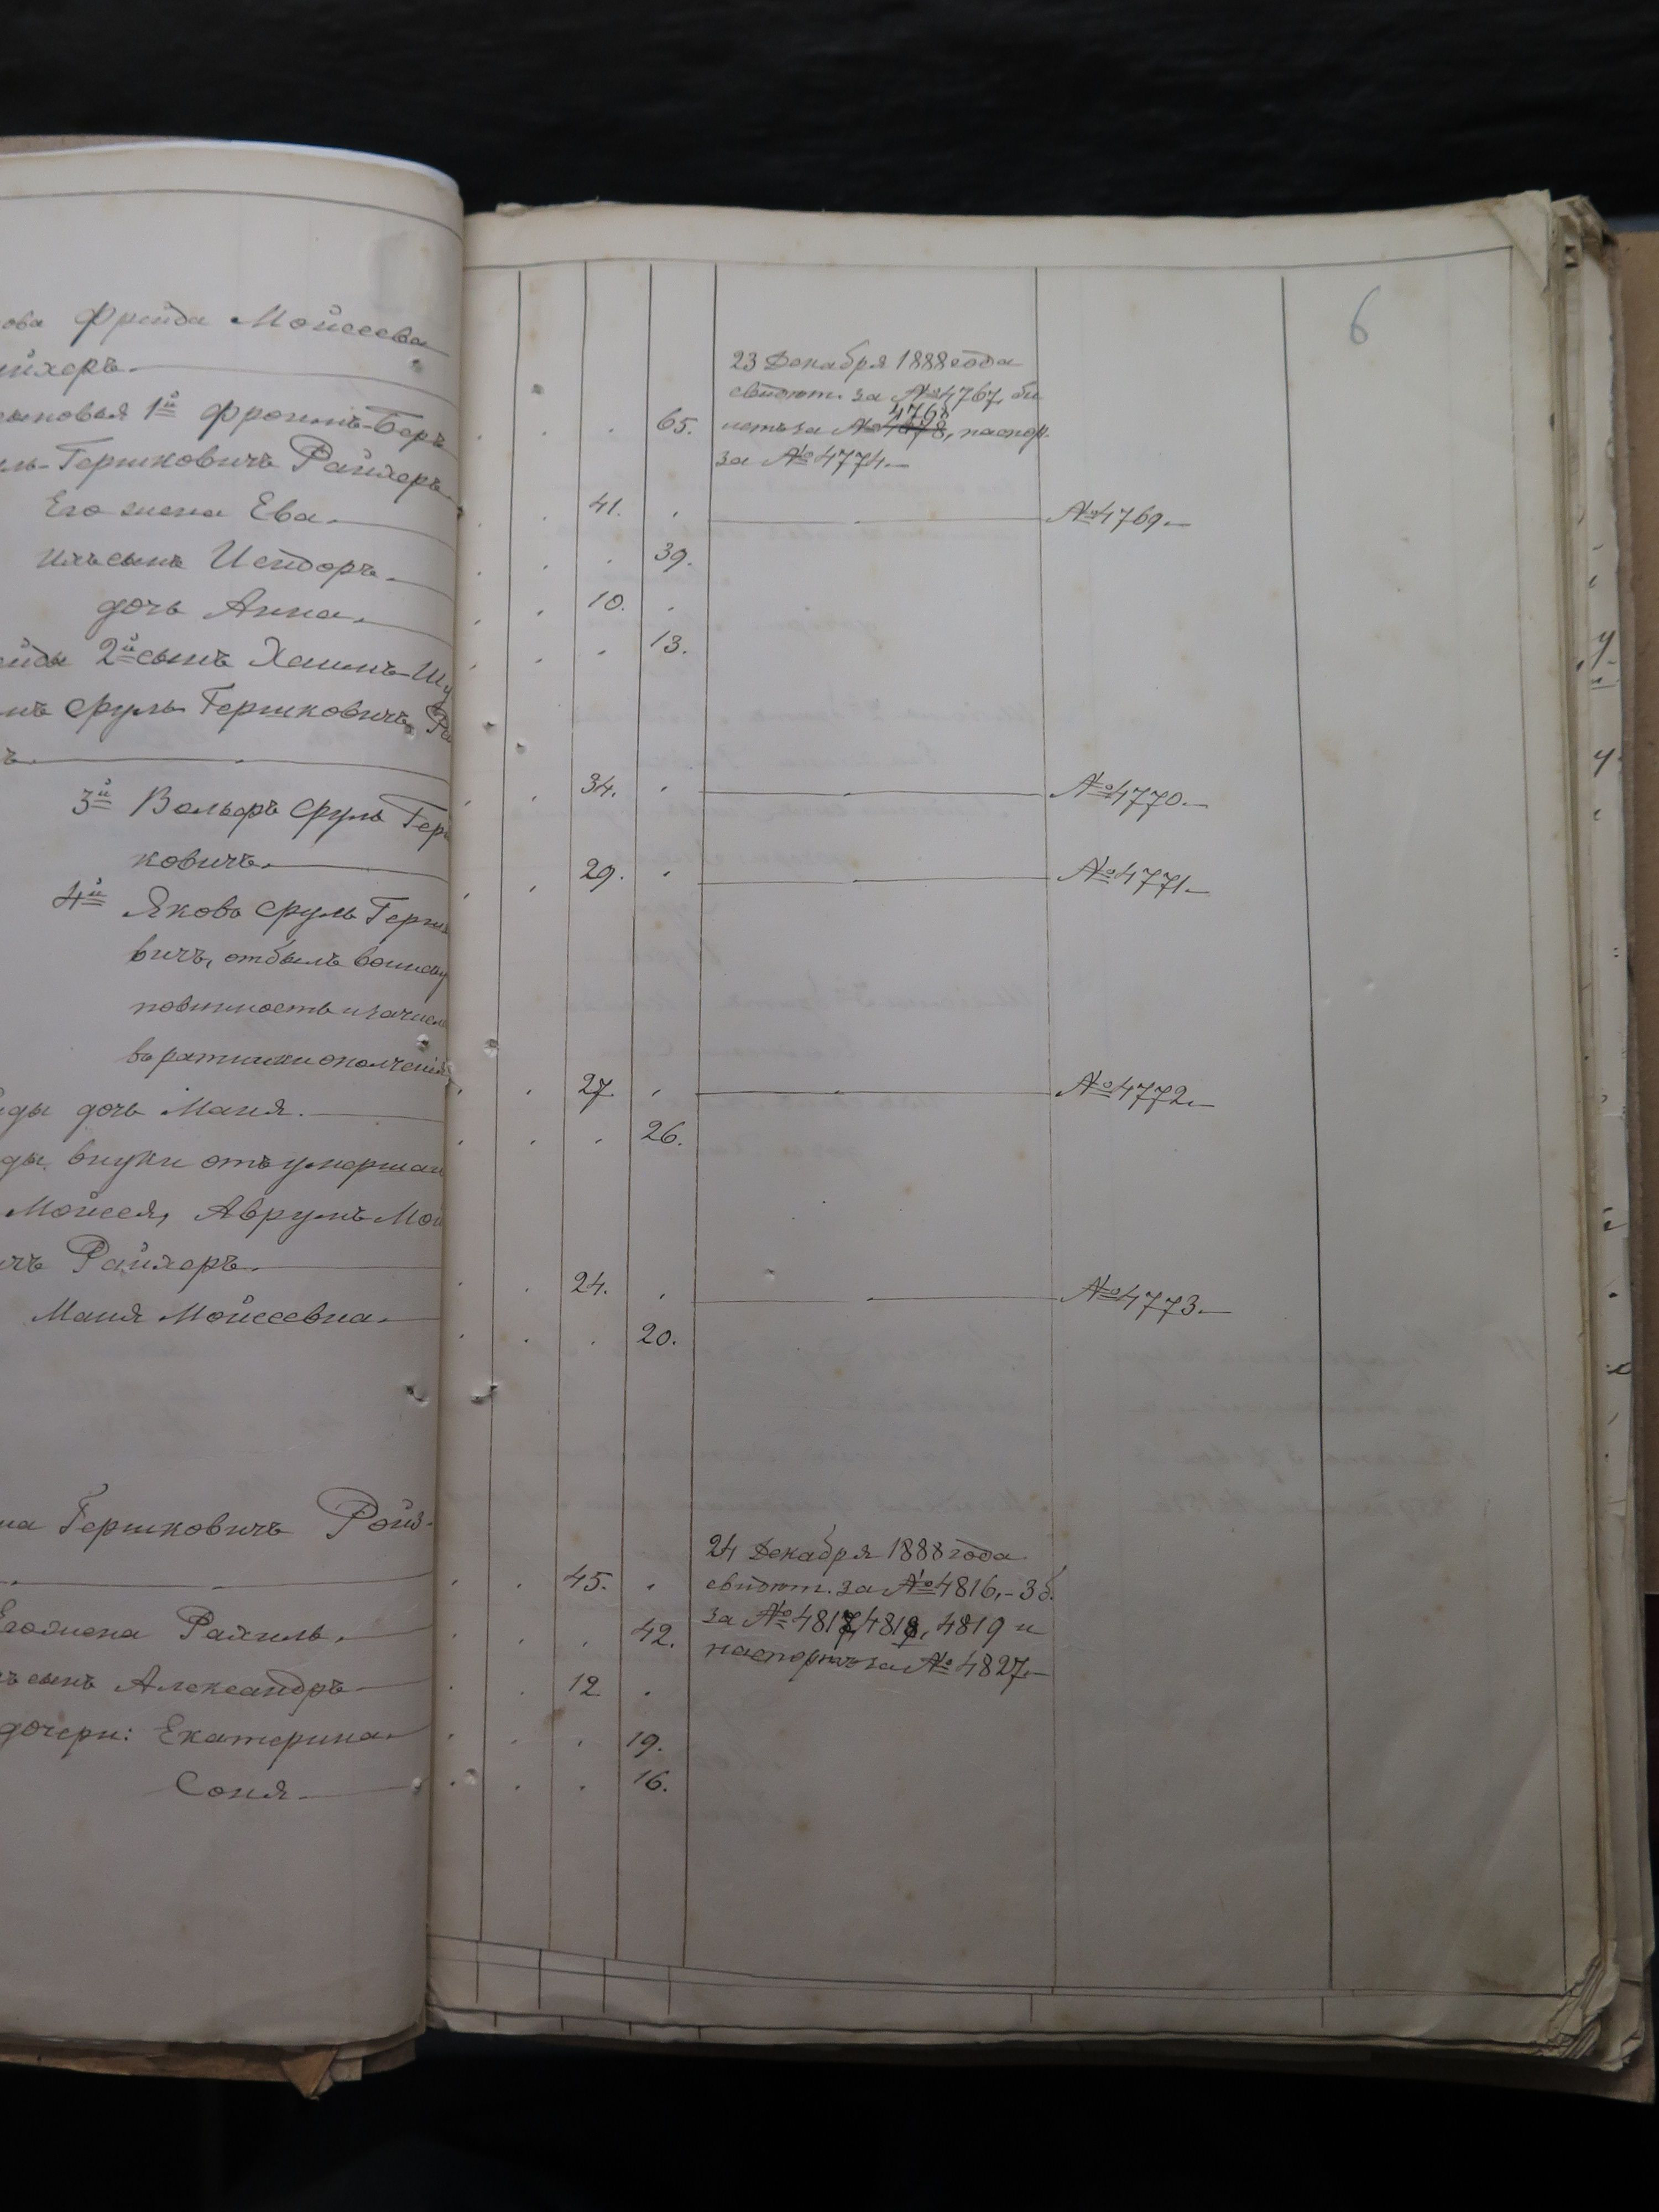 6
ова Фрейда Мойсеева
йхеръ.
сыновья 1й Фроимъ-Беръ
ль-Гершковичъ Райхеръ
Его жена Ева.
Ихъ сынъ Исидоръ.
дочь Анна.
йды 2й сынъ Хаимъ-Шу
мъ Сруль Гершковичъ Ра
ъ.
3й Вольфъ Сруль Герш
ковичъ.
4й Яковъ Сруль Гершко
вичъ, отбылъ воинску
повинность и зачисл
въ ратники ополченія
йды дочь Маня.
ды внуки отъ умершаго
Мойсея, Аврумъ Мой
чъ Райхеръ.
Маня Мойсеевна.
на Гершковичъ Ройз-
Его жена Рахиль.
ъ сынъ Александръ
дочери: Екатерина
Соня
23 Декабря 1888 года
свидѣт. за № 4767, би
4768
65. летъ за № 4878, паспор.
за № 4774.
41. № 4769.
39.
10.
13.
34. № 4770.
29. № 4771
27. № 4772.
26.
24. № 4773.
20.
24 Декабря 1888 года
45. свидѣт. за № 4816, - 3 б.
42. за № 4817, 4818, 4819 и
паспортъ за № 4827
12
19.
16.